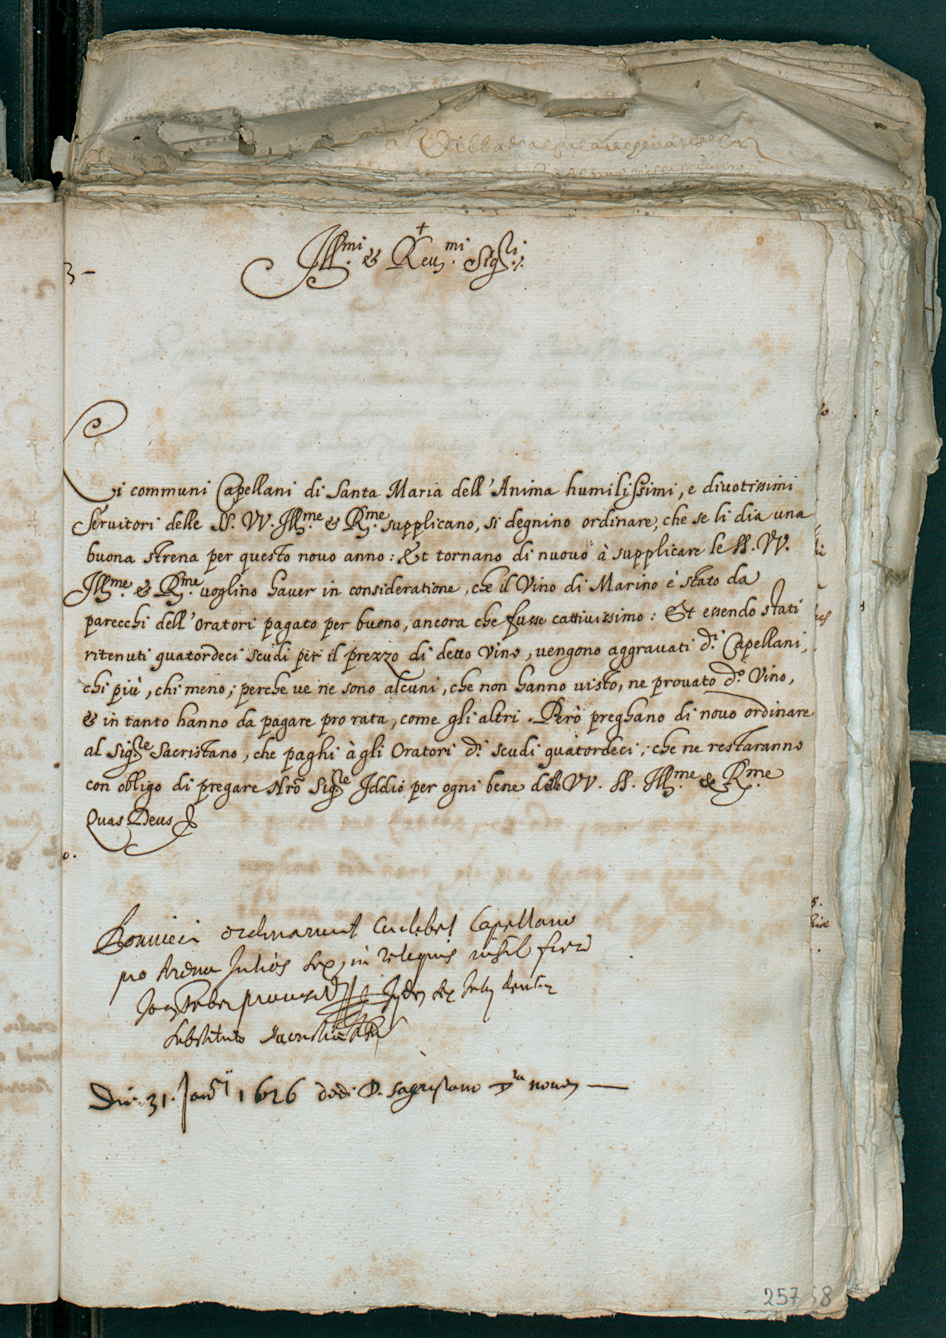 +
Ill.mi & Reu.mi Sig.ri
3-
Li communi Capellani di Santa Maria dell'Anima humilissimi, e divotissimi
Servitori delle SS. VV. Ill.me & R.me supplicano, si degnino ordinare, che se li dia una
buona strena per questo novo anno: Et tornano di nuovo à supplicare le SS. VV.
Ill.me & R.me voglino haver in consideratione, che il Vino di Marino è stato da
parecchi dell'Oratori pagato per buono, ancora che fusse cattivissimo: Et essendo stati
ritenuti quatordeci scudi per il prezzo di detto vino, vengono aggravati d.i Capellani,
chi più, chi meno; perche ve ne sono alcuni, che non hanno visto, ne provato d.o Vino,
& in tanto hanno da pagare pro rata, come gli altri. Però preghano di novo ordinare
al Sig.re Sacristano, che paghi à gli Oratori d.i scudi quatordeci; che ne restaranno
con obligo di pregare Nrõ Sig.re Iddio per ogni bene delle VV. SS. Ill.me & R.me
Quas Deus
ordinarunt cuilibet Capellano
pro strena Julios sex, in reliquis nihil fieri
Substituto
Die 31. Jan.rii 1626 dedi D. Sagristano nouem
257 58